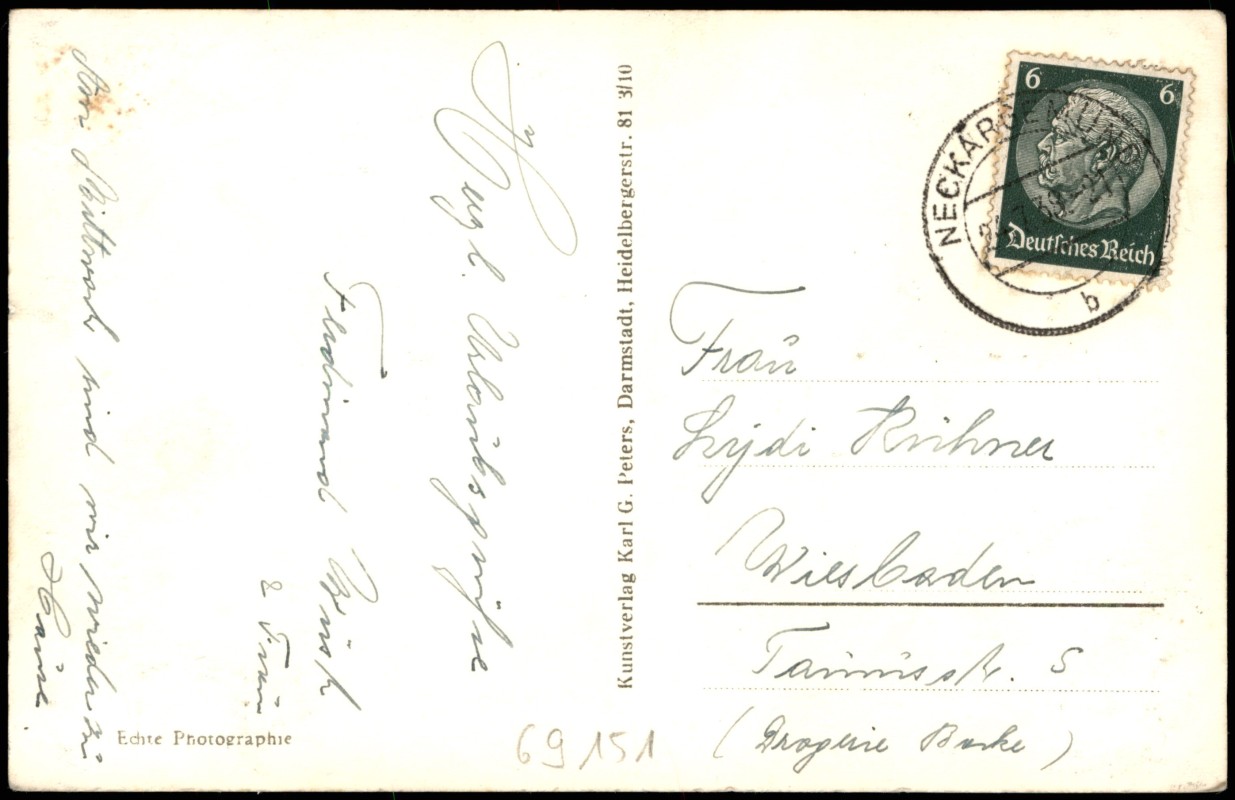 Hzl. Urlaubsgrüße
Ferdinand Büsch
& Frau
Am Mittwoch sind wir wieder zu
Hause.
Echte Photographie
Kunstverlag Karl G. Peters, Darmstadt, Heidelbergerstr. 81 3/10
6 6
Deutsches Reich
NECKARGEMÜND
b
Frau
Lydi Rühner
Wiesbaden
Taunusstr. 5
(Drogerie Backe)
69151